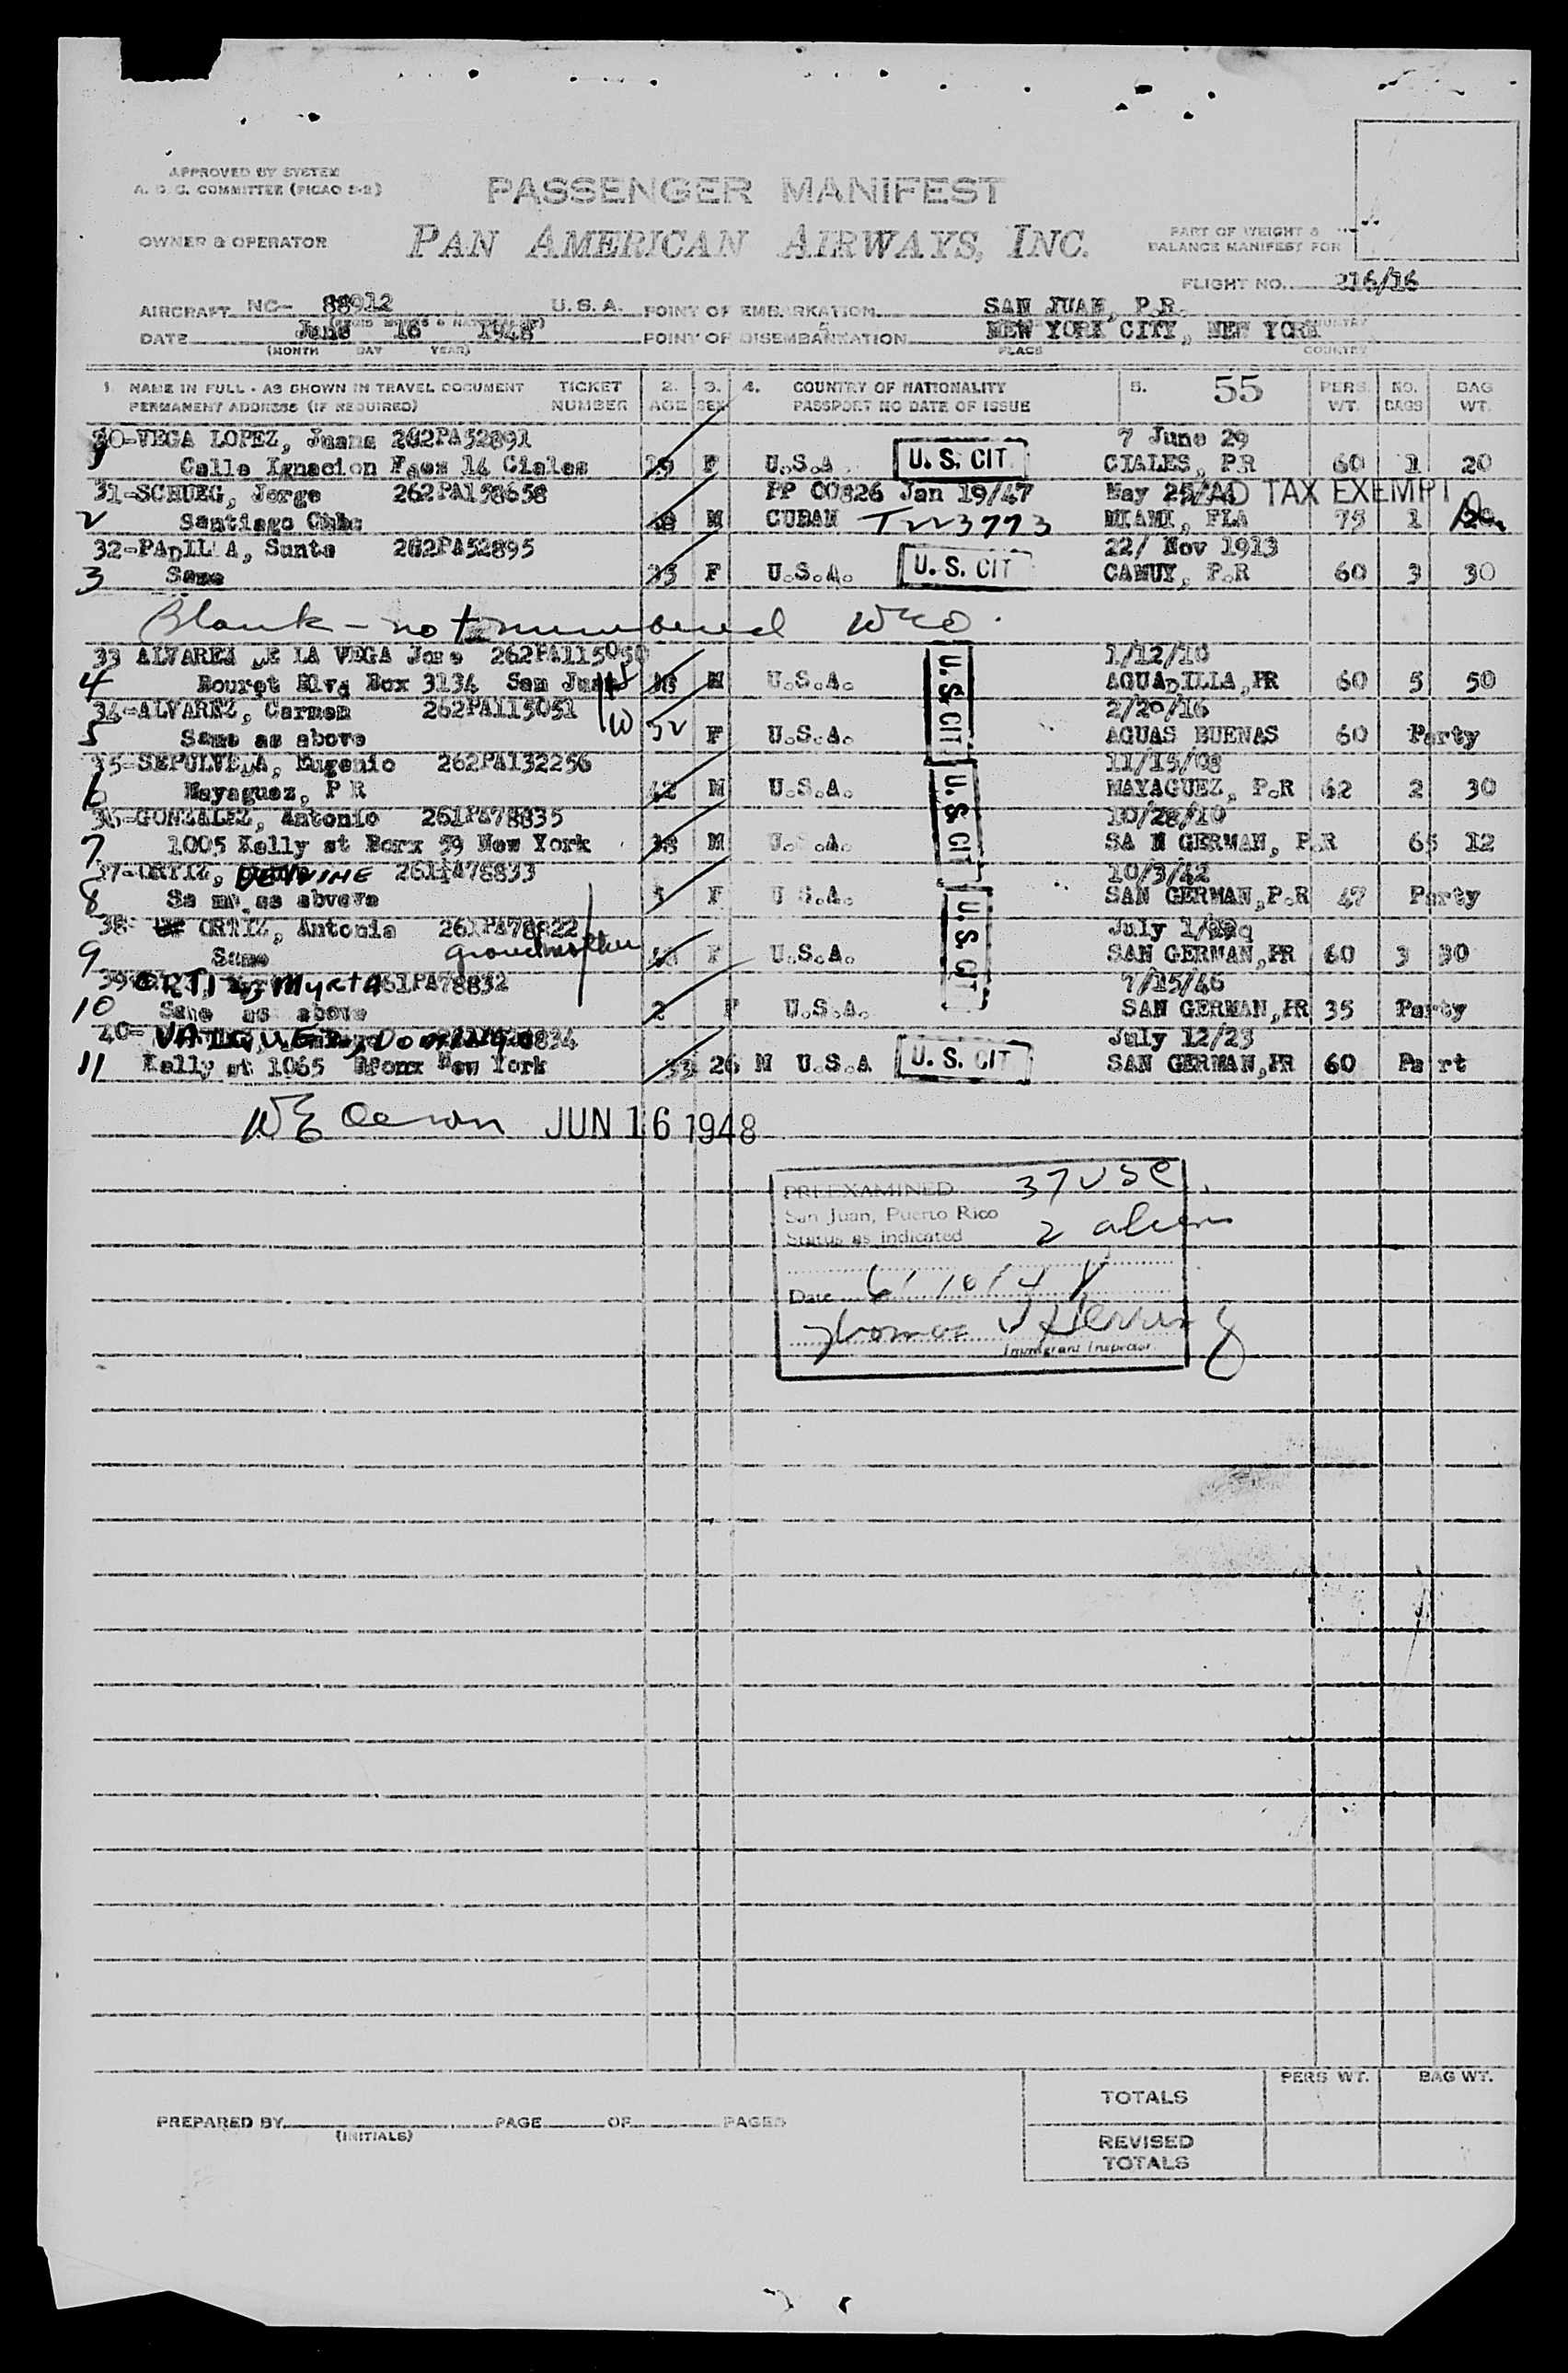 APPROVED BY SYSTEM
A. D. C. COMMITTEE (PICAO S-2)
PASSENGER MANIFEST
OWNER & OPERATOR
PAN AMERICAN AIRWAYS, INC.
PART OF WEIGHT &
BALANCE MANIFEST FOR
FLIGHT NO. 216/16
AIRCRAFT NC- 88912 U.S.A. POINT OF EMBARKATION SAN JUAN, P.R.
DATE June 16 1948 POINT OF DISEMBARKATION NEW YORK CITY, NEW YORK
(MONTH DAY YEAR) PLACE COUNTRY
1. NAME IN FULL - AS SHOWN IN TRAVEL DOCUMENT TICKET 2. 3. 4. COUNTRY OF NATIONALITY 5. 55 PERS. NO. BAG
PERMANENT ADDRESS (IF REQUIRED) NUMBER AGE SEX PASSPORT NO DATE OF ISSUE WT. BAGS WT.
30-VEGA LOPEZ, Juana 262PA52891 7 June 29
1 Calle Ignacion Paes 14 Ciales 19 F U.S.A. U.S. CIT. CIALES, PR 60 1 20
31-SCHUEG, Jorge 262PA158658 PP 00826 Jan 19/47 May 25/ HEAD TAX EXEMPT
2 Santiago Cuba M CUBAN T223773 MIAMI, FLA 75 1
32-PADILLA, Sunta 262PA52895 22/ Nov 1913
3 Same 35 F U.S.A. U.S. CIT CAMUY, P.R 60 3 30
Blank - not numbered WEO.
33 ALVAREZ DE LA VEGA Jose 262PA115050 1/12/10
4 Bouret Blvd Box 3134 San Juan M U.S.A. U.S CIT AGUADILLA, PR 60 5 50
34-ALVAREZ, Carmen 262PA115051 W 2/20/16
5 Same as above 32 F U.S.A. AGUAS BUENAS 60 Party
35-SEPULVEDA, Eugenio 262PA132256 11/15/08
6 Mayaguez, P R 42 M U.S.A. U.S CIT MAYAGUEZ, P.R 62 2 30
36-GONZALEZ, Antonio 261PA78835 10/28/10
7 1005 Kelly st Borx 59 New York 38 M U.S.A. SA N GERMAN, P.R 65 12
37-ORTIZ, 261PA78833 10/3/42
8 Sa me as abveve 5 F U.S.A. U.S CIT SAN GERMAN, P.R 47 Party
38- ORTIZ, Antonia 261PA78822 July 1/
9 Same Grandmother F U.S.A. SAN GERMAN, PR 60 3 30
39 ORTIZ, Myrta 261PA78832 7/15/46
10 Same as above 2 F U.S.A. SAN GERMAN, PR 35 Party
40- July 12/23
11 Kelly st 1065 Bronx New York 33 26 M U.S.A U.S. CIT SAN GERMAN, PR 60 Pa rt
JUN 16 1948
PREEXAMINED 37 USC
San Juan, Puerto Rico
Status as indicated 2 aliens
Date
Thomas J Herring
Immigrant Inspector
PERS WT. BAG WT.
TOTALS
PREPARED BY PAGE OF PAGES
(INITIALS)
REVISED
TOTALS